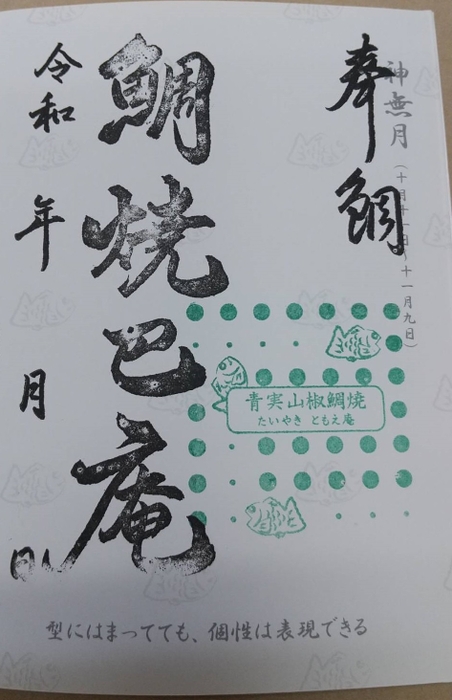 神無月
(十月十一日〜十一月九日)
奉鯛
鯛焼巴庵
令和 年 月 日
青実山椒鯛焼
たいやき ともえ庵
型にはまってても、個性は表現できる